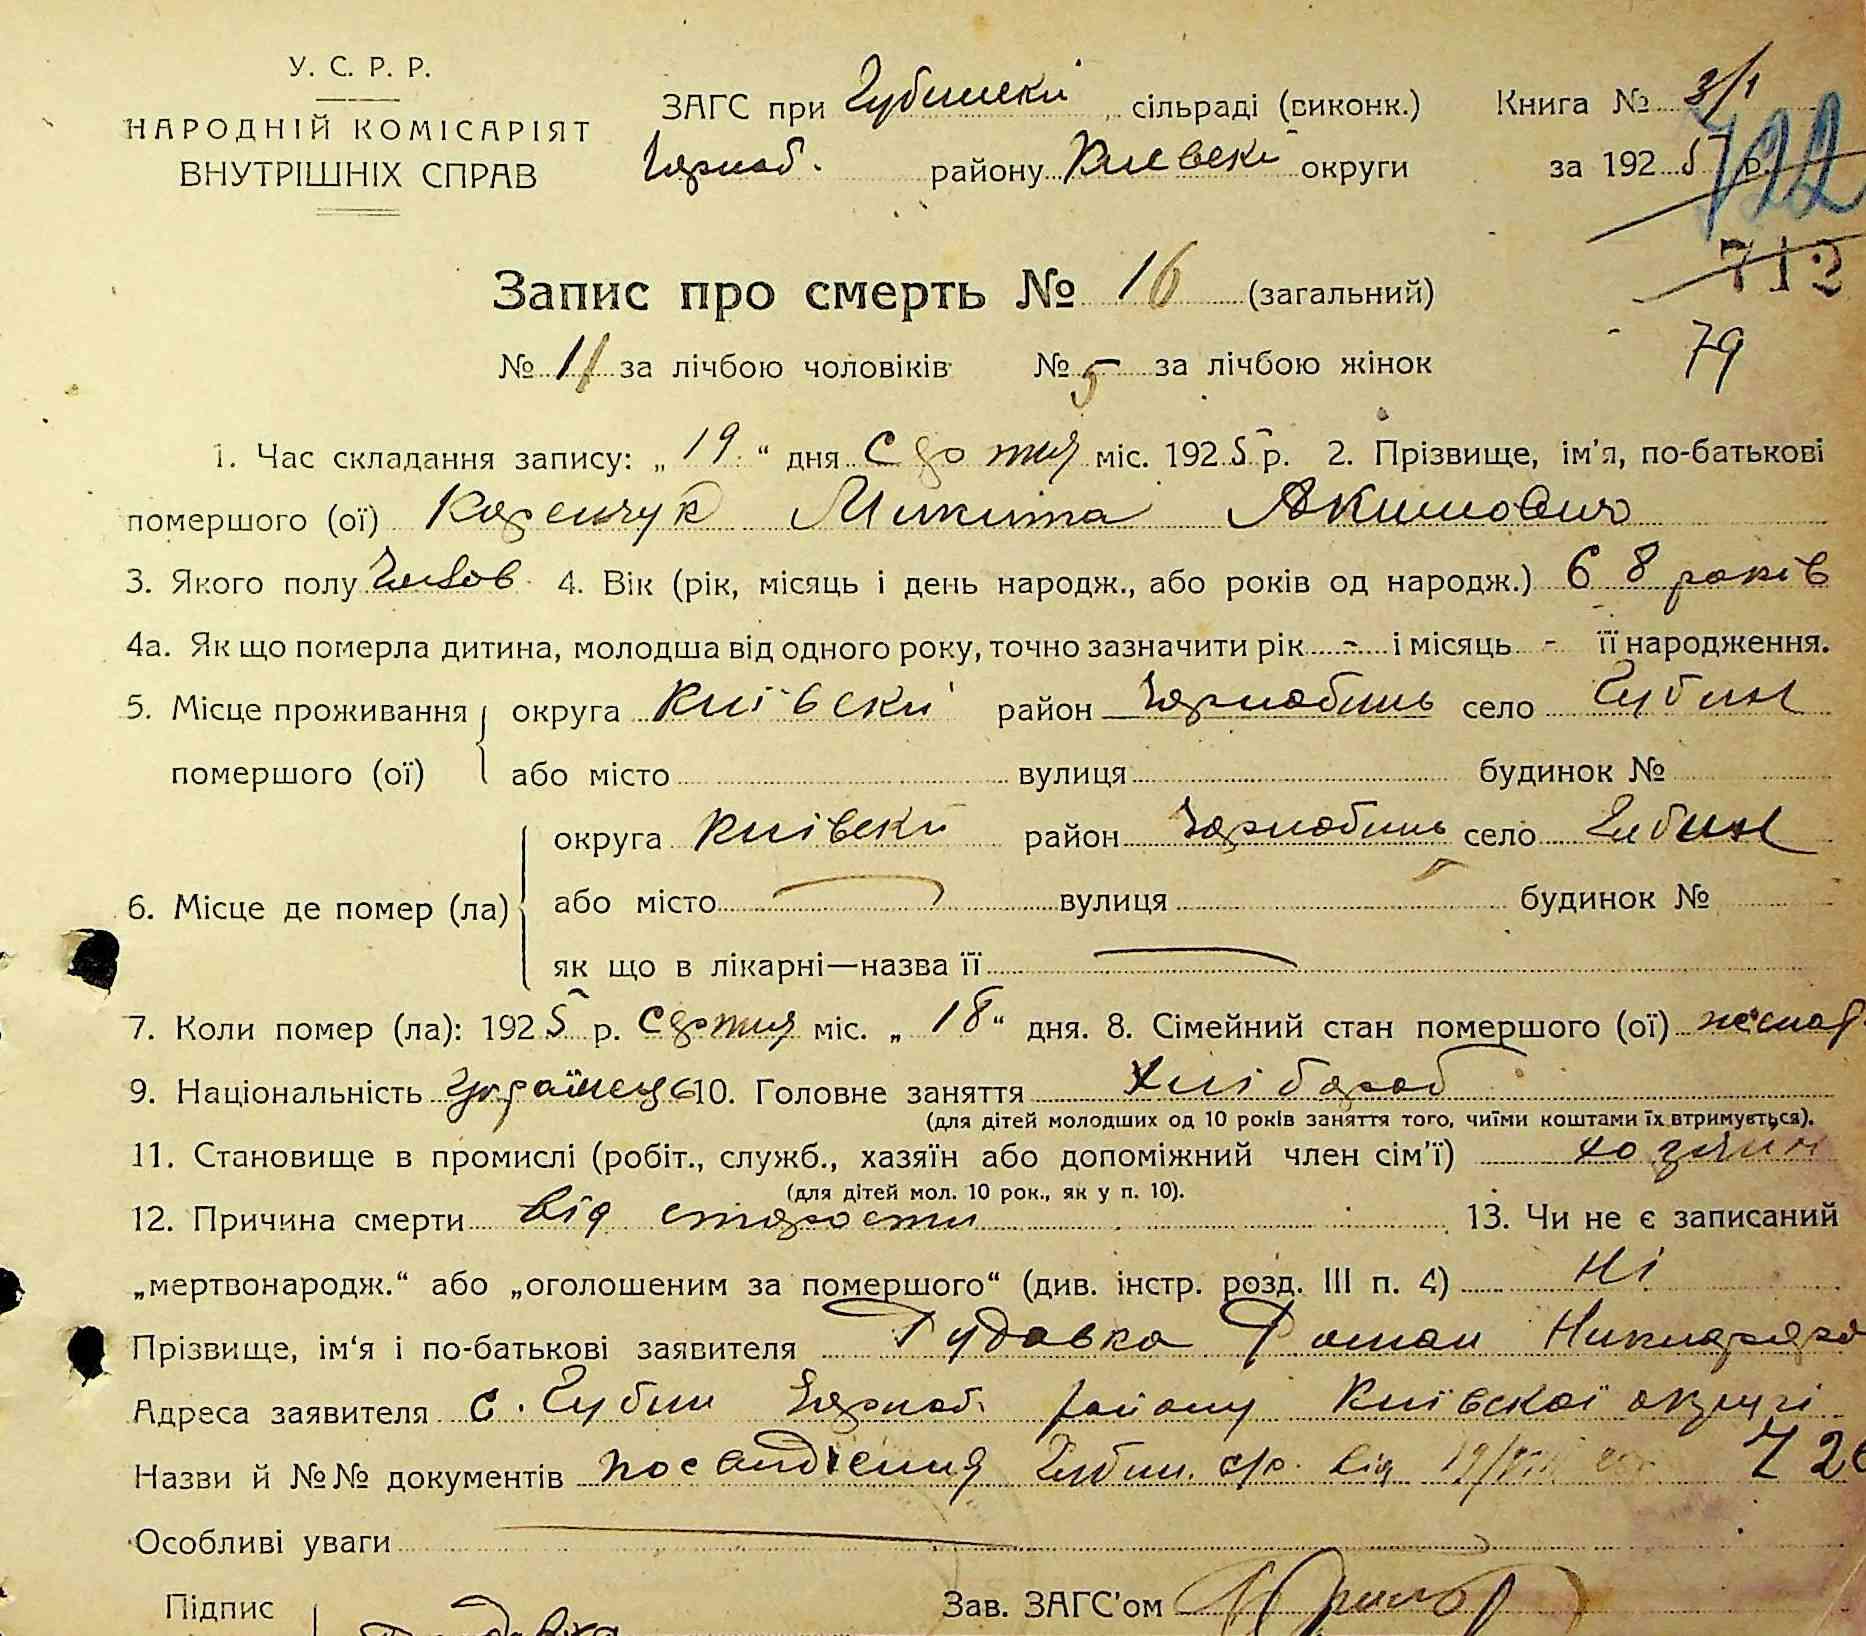 У. С. Р. Р.
НАРОДНІЙ КОМІСАРІЯТ
ВНУТРІШНІХ СПРАВ
ЗАГС при Губински сільраді (виконк.)
Чорноб. району Киевски округи
Книга № 3/1
за 1925 р.
722
712
79
Запис про смерть № 16 (загальний)
№ 11 за лічбою чоловіків № 5 за лічбою жінок
1. Час складання запису: „19“ дня Серпня міс. 1925 р. 2. Прізвище, ім'я, по-батькові
помершого (ої) Микита Акимович
3. Якого полу Чолов. 4. Вік (рік, місяць і день народж., або років од народж.) 68 років
4а. Як що померла дитина, молодша від одного року, точно зазначити рік - і місяць - її народження.
5. Місце проживання округа Київски район Чорнобиль село Губин
помершого (ої) або місто вулиця будинок №
округа Київски район Чорнобиль село Губин
6. Місце де помер (ла) або місто вулиця будинок №
як що в лікарні—назва її
7. Коли помер (ла): 1925 р. Серпня міс. „18“ дня. 8. Сімейний стан помершого (ої)
9. Національність Українець 10. Головне заняття Хлібороб
(для дітей молодших од 10 років заняття того, чиїми коштами їх втримується).
11. Становище в промислі (робіт., служб., хазяїн або допоміжний член сім'ї) хозяин
(для дітей мол. 10 рок., як у п. 10).
12. Причина смерти від старости 13. Чи не є записаний
„мертвонародж.“ або „оголошеним за помершого“ (див. інстр. розд. III п. 4) Ні
Прізвище, ім'я і по-батькові заявителя Рудавка Роман
Адреса заявителя с. Губин Чорноб. району Київскої округи
Назви й №№ документів посвідчення Губин. с/р. від 19/VIII 726
Особливі уваги
Підпис Зав. ЗАГС'ом